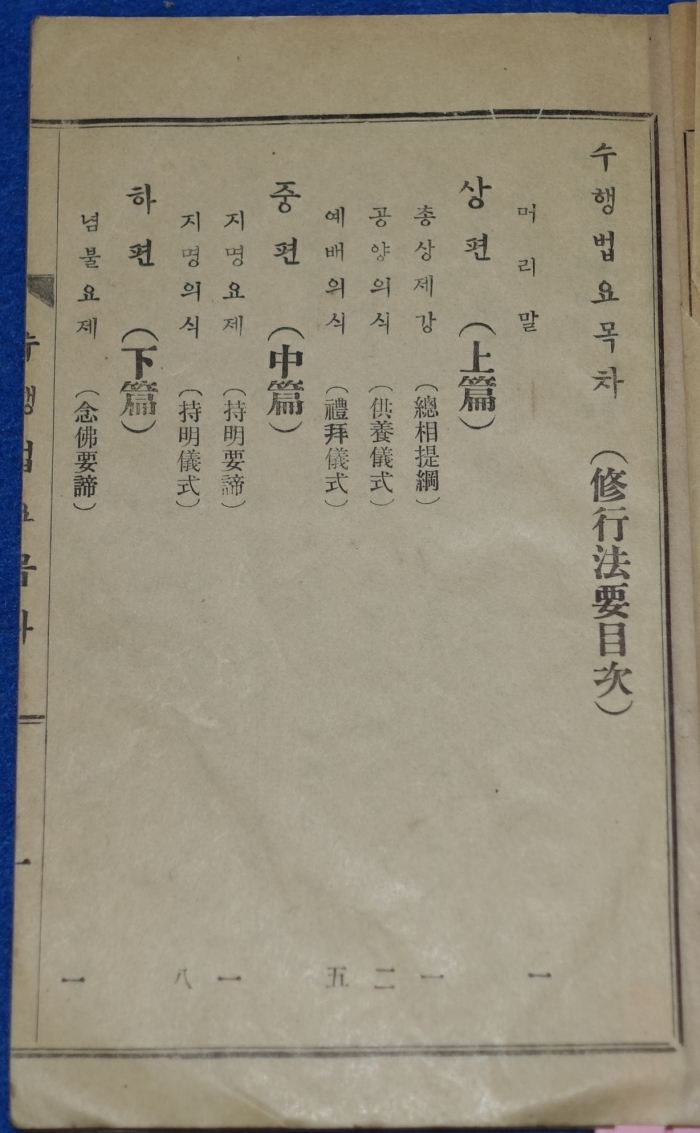 수행법요목차 (修行法要目次)
머리말 一
상편 (上篇)
총상제강 (總相提綱) 一
공양의식 (供養儀式) 二
예배의식 (禮拜儀式) 五
중편 (中篇)
지명요제 (持明要諦) 一
지명의식 (持明儀式) 八
하편 (下篇)
념불요제 (念佛要諦) 一
수행법요목차 一